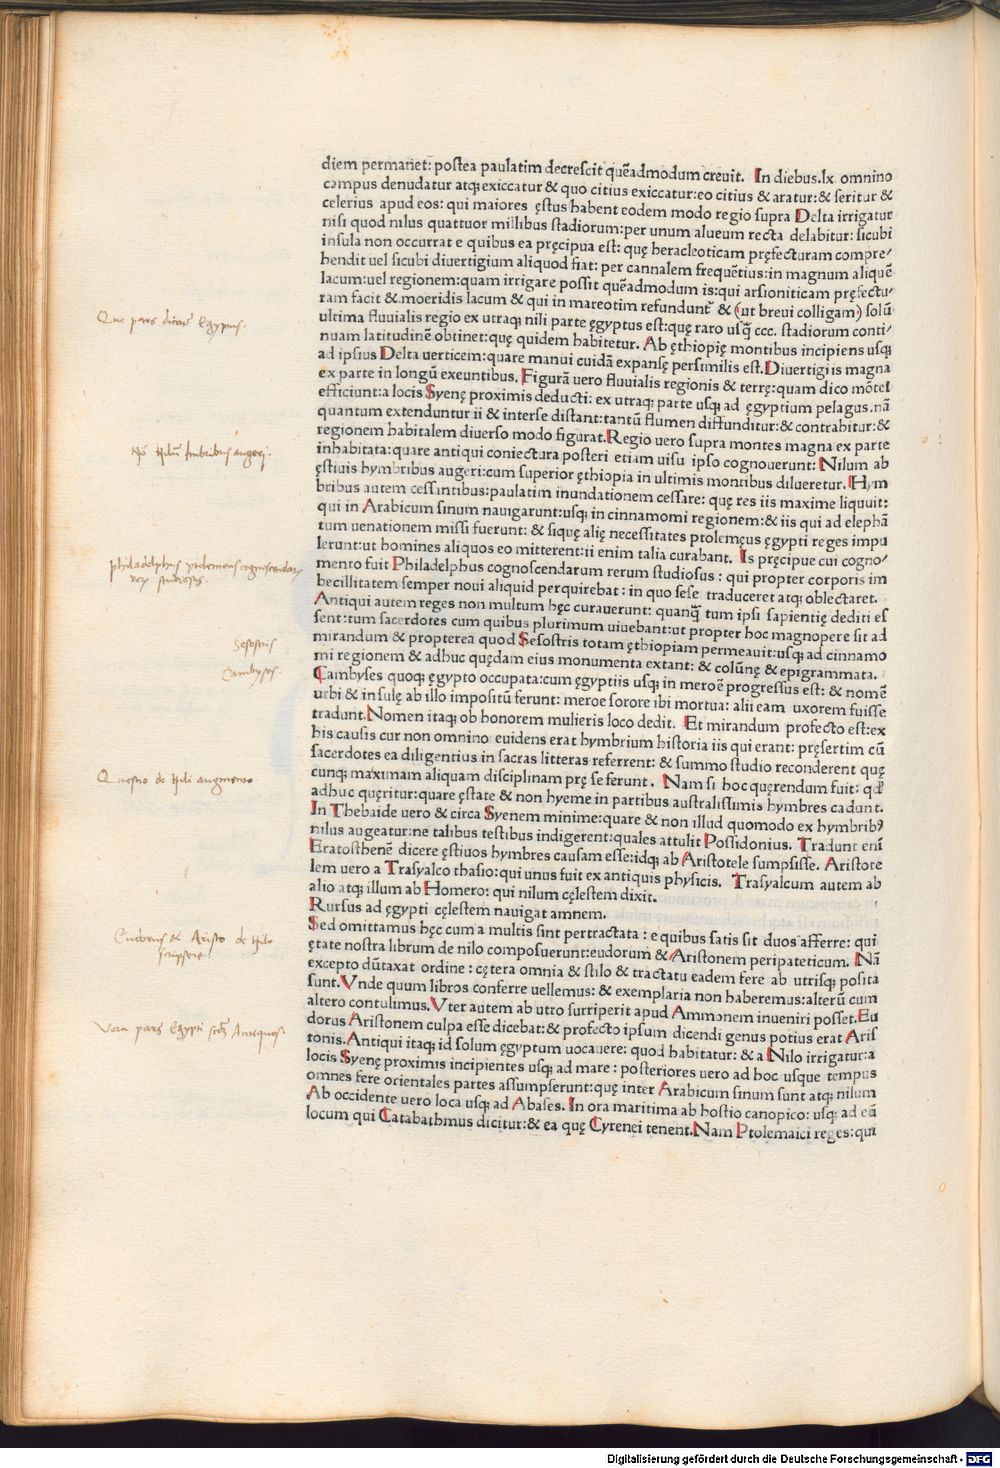 diem permanet: postea paulatim decrescit quẽadmodum creuit. In diebus.lx omnino
campus denudatur atq; exiccatur & quo citius exiccatur: eo citius & aratur: & seritur &
celerius apud eos: qui maiores ęstus habent eodem modo regio supra Delta irrigatur
nisi quod nilus quattuor millibus stadiorum: per unum alueum recta delabitur: sicubi
insula non occurrat e quibus ea pręcipua est: quę heracleoticam pręfecturam compre/
hendit uel sicubi diuertigium aliquod fiat: per cannalem frequẽtius: in magnum aliquẽ
lacum: uel regionem: quam irrigare possit quẽadmodum is: qui arsioniticam pręfectu/
ram facit & moeridis lacum & qui in mareotim refundunt & (ut breui colligam) solũ
ultima fluuialis regio ex utraq; nili parte ęgyptus est: quę raro usq̃ ccc. stadiorum conti/
nuam latitudinẽ obtinet: quę quidem habitetur. Ab ęthiopię montibus incipiens usq;
ad ipsius Delta uerticem: quare manui cuidã expansę persimilis est. Diuertigiis magna
ex parte in longũ exeuntibus. Figurã uero fluuialis regionis & terrę: quam dico mõtes
efficiunt: a locis Syenę proximis deducti: ex utraq; parte usq; ad ęgyptium pelagus. nã
quantum extenduntur ii & interse distant: tantũ flumen diffunditur: & contrahitur: &
regionem habitalem diuerso modo figurat. Regio uero supra montes magna ex parte
inhabitata: quare antiqui coniectura posteri etiam uisu ipso cognouerunt: Nilum ab
ęstiuis hymbribus augeri: cum superior ęthiopia in ultimis montibus dilueretur. Hym
bribus autem cessantibus: paulatim inundationem cessare: quę res iis maxime liquuit:
qui in Arabicum sinum nauigarunt: usq; in cinnamomi regionem: & iis qui ad elephã
tum uenationem missi fuerunt: & siquę alię necessitates ptolemęus ęgypti reges impu
lerunt: ut homines aliquos eo mitterent: ii enim talia curabant. Is pręcipue cui cogno/
mento fuit Philadelphus cognoscendarum rerum studiosus: qui propter corporis im
becillitatem semper noui aliquid perquirebat: in quo sese traduceret atq; oblectaret.
Antiqui autem reges non multum hęc curauerunt: quanq̃ tum ipsi sapientię dediti es
sent: tum sacerdotes cum quibus plurimum uiuebant: ut propter hoc magnopere sit ad
mirandum & propterea quod Sesostris totam ęthiopiam permeauit: usq; ad cinnamo
mi regionem & adhuc quędam eius monumenta extant: & colũnę & epigrammata.
Cambyses quoq; ęgypto occupata: cum ęgyptiis usq; in meroẽ progressus est: & nomẽ
urbi & insulę ab illo impositũ ferunt: meroe sorore ibi mortua: alii eam uxorem fuisse
tradunt. Nomen itaq; ob honorem mulieris loco dedit. Et mirandum profecto est: ex
his causis cur non omnino euidens erat hymbrium historia iis qui erant: pręsertim cũ
sacerdotes ea diligentius in sacras litteras referrent: & summo studio reconderent quę
cunq; maximam aliquam disciplinam prę se ferunt. Nam si hoc quęrendum fuit: qđ
adhuc quęritur: quare ęstate & non hyeme in partibus australissimis hymbres cadunt.
In Thebaide uero & circa Syenem minime: quare & non illud quomodo ex hymbribꝰ
nilus augeatur: ne talibus testibus indigerent: quales attulit Possidonius. Tradunt enĩ
Eratosthenẽ dicere ęstiuos hymbres causam esse: idq; ab Aristotele sumpsisse. Aristote
lem uero a Trasyalco thasio: qui unus fuit ex antiquis physicis. Trasyalcum autem ab
alio atq; illum ab Homero: qui nilum cęlestem dixit.
Rursus ad ęgypti cęlestem nauigat amnem.
Sed omittamus hęc cum a multis sint pertractata: e quibus satis sit duos afferre: qui
ętate nostra librum de nilo composuerunt: eudorum & Aristonem peripateticum. Nã
excepto dũtaxat ordine: cętera omnia & stilo & tractatu eadem fere ab utrisq; posita
sunt. Vnde quum libros conferre uellemus: & exemplaria non haberemus: alterũ cum
altero contulimus. Vter autem ab utro surriperit apud Ammonem inueniri posset. Eu
dorus Aristonem culpa esse dicebat: & profecto ipsum dicendi genus potius erat Aris
tonis. Antiqui itaq; id solum ęgyptum uocauere: quod habitatur: & a Nilo irrigatur: a
locis Syenę proximis incipientes usq; ad mare: posteriores uero ad hoc usque tempus
omnes fere orientales partes assumpserunt: quę inter Arabicum sinum sunt atq; nilum
Ab occidente uero loca usq; ad Abases. In ora maritima ab hostio canopico: usq; ad eũ
locum qui Catabathmus dicitur: & ea quę Cyrenei tenent. Nam Ptolemaici reges: qui
Que pars dicatur Egyptus.
Nilum imbribus augeri.
philadelphus ptolemeus cognoscendarum
rerum studiosus.
Sesostris
Cambyses.
Questio de Nili augmento
Eudorus et Aristo de Nilo
scripsere
Vera pars Egypti secundum Antiquos.
Digitalisierung gefördert durch die Deutsche Forschungsgemeinschaft - DFG